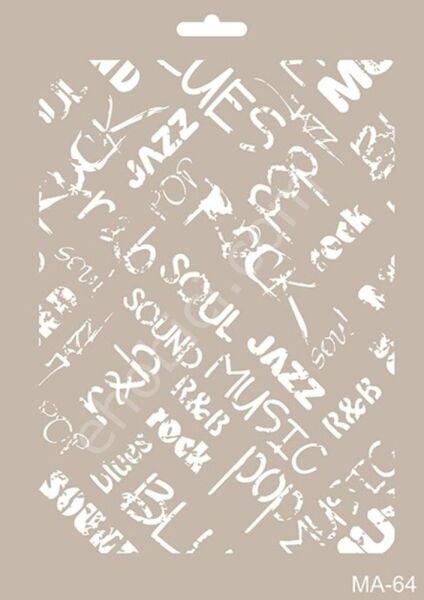 LUES
ROCK
JAZZ
JAZZ
POP
pop
r&b
rock
SOUL
SOUL
SOUL
SOUND
JAZZ
JAZZ
r&b
MUSIC
R&B
R&B
POP
rock
blues
pop
MUSIC
SOUND
BLU
MUSIC
MA-64